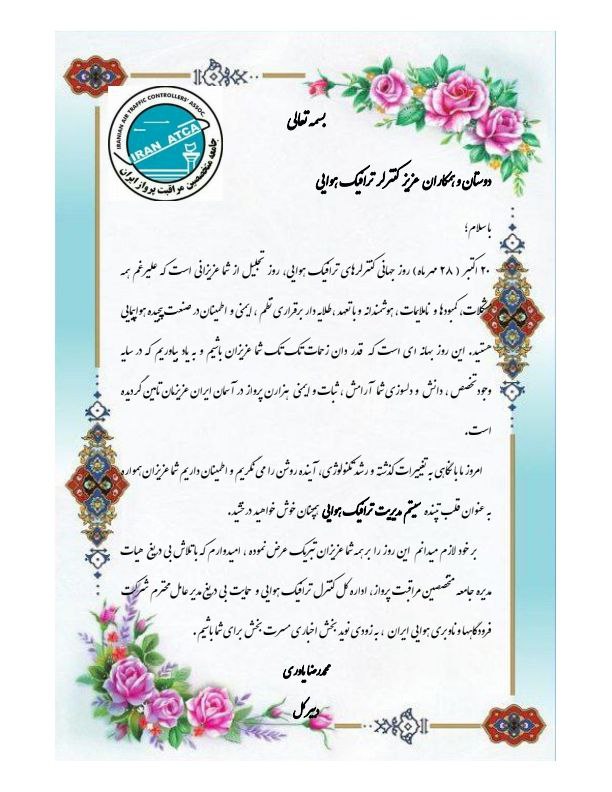 IRANIAN AIR TRAFFIC CONTROLLERS' ASSOC.
IRAN ATCA
جامعه متخصصین مراقبت پرواز ایران
بسمه تعالی
دوستان و همکاران عزیز کنترلر ترافیک هوایی
با سلام؛
۲۰ اکتبر ( ۲۸ مهر ماه) روز جهانی کنترلرهای ترافیک هوایی، روز تجلیل از شما عزیزانی است که علیرغم همه
مشکلات، کمبودها و ناملایمات ، هوشمندانه و با تعهد ، طلایه دار برقراری نظم ، ایمنی و اطمینان در صنعت پیچیده هواپیمایی
هستید. این روز بهانه ای است که قدر دان زحمات تک تک شما عزیزان باشیم و به یاد بیاوریم که در سایه
وجود تخصص ، دانش و دلسوزی شما آرامش ، ثبات و ایمنی هزارن پرواز در آسمان ایران عزیزمان تامین گردیده
است.
امروز ما با نگاهی به تغییرات گذشته و رشد تکنولوژی، آینده روشن را می نگریم و اطمینان داریم شما عزیزان همواره
به عنوان قلب تپنده سیستم مدیریت ترافیک هوایی همچنان خوش خواهید درخشید.
بر خود لازم میدانم این روز را بر همه شما عزیزان تبریک عرض نموده ، امیدوارم که با تلاش بی دریغ هیات
مدیره جامعه متخصصین مراقبت پرواز، اداره کل کنترل ترافیک هوایی و حمایت بی دریغ مدیر عامل محترم شرکت
فرودگاهها و ناوبری هوایی ایران ، به زودی نوید بخش اخباری مسرت بخش برای شما باشیم .
محمدرضا یاوری
دبیر کل